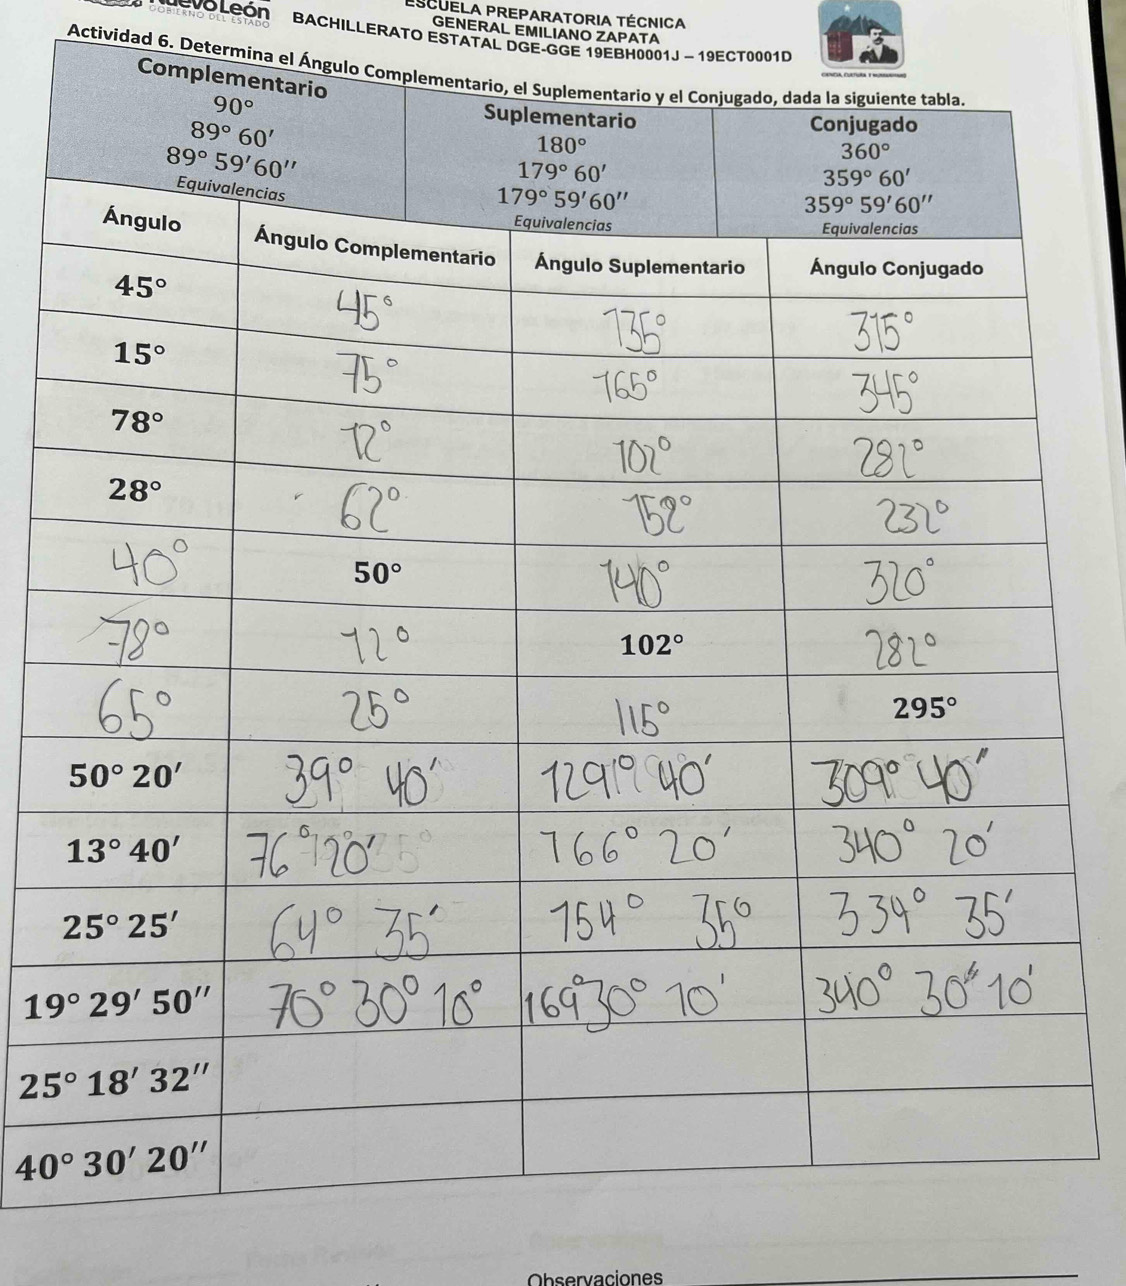 Nuevo León
GOBIERNO DEL ESTADO
ESCUELA PREPARATORIA TÉCNICA
GENERAL EMILIANO ZAPATA
BACHILLERATO ESTATAL DGE-GGE 19EBH0001J – 19ECT0001D
Actividad 6. Determina el Ángulo Complementario, el Suplementario y el Conjugado, dada la siguiente tabla.
Complementario Suplementario Conjugado
90° 180° 360°
89° 60′ 179° 60′ 359° 60′
89° 59′60′′ 179° 59′60′′ 359° 59′60′′
Equivalencias Equivalencias Equivalencias
Ángulo Ángulo Complementario Ángulo Suplementario Ángulo Conjugado
45° 45° 135° 315°
15° 75° 165° 345°
78° 12° 102° 282°
28° 62° 152° 232°
40° 50° 140° 320°
78° 12° 102° 282°
65° 25° 115° 295°
50° 20′ 39° 40′ 129° 40′ 309° 40′′
13° 40′ 76° 20′ 166° 20′ 340° 20′
25° 25′ 64° 35′ 154° 35° 334° 35′
19° 29′ 50′′ 70° 30° 10° 169° 30° 10′ 340° 30′′ 10′
25° 18′ 32′′
40° 30′ 20′′
Observaciones